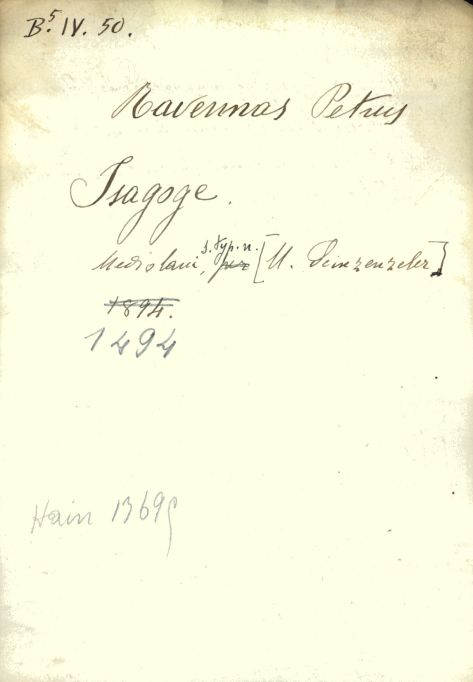 B.5 IV. 50.
Ravennas Petrus
Isagoge.
Mediolani, s. typ. n. [U. Scinzenzeler]
1894.
1494
Hain 1369